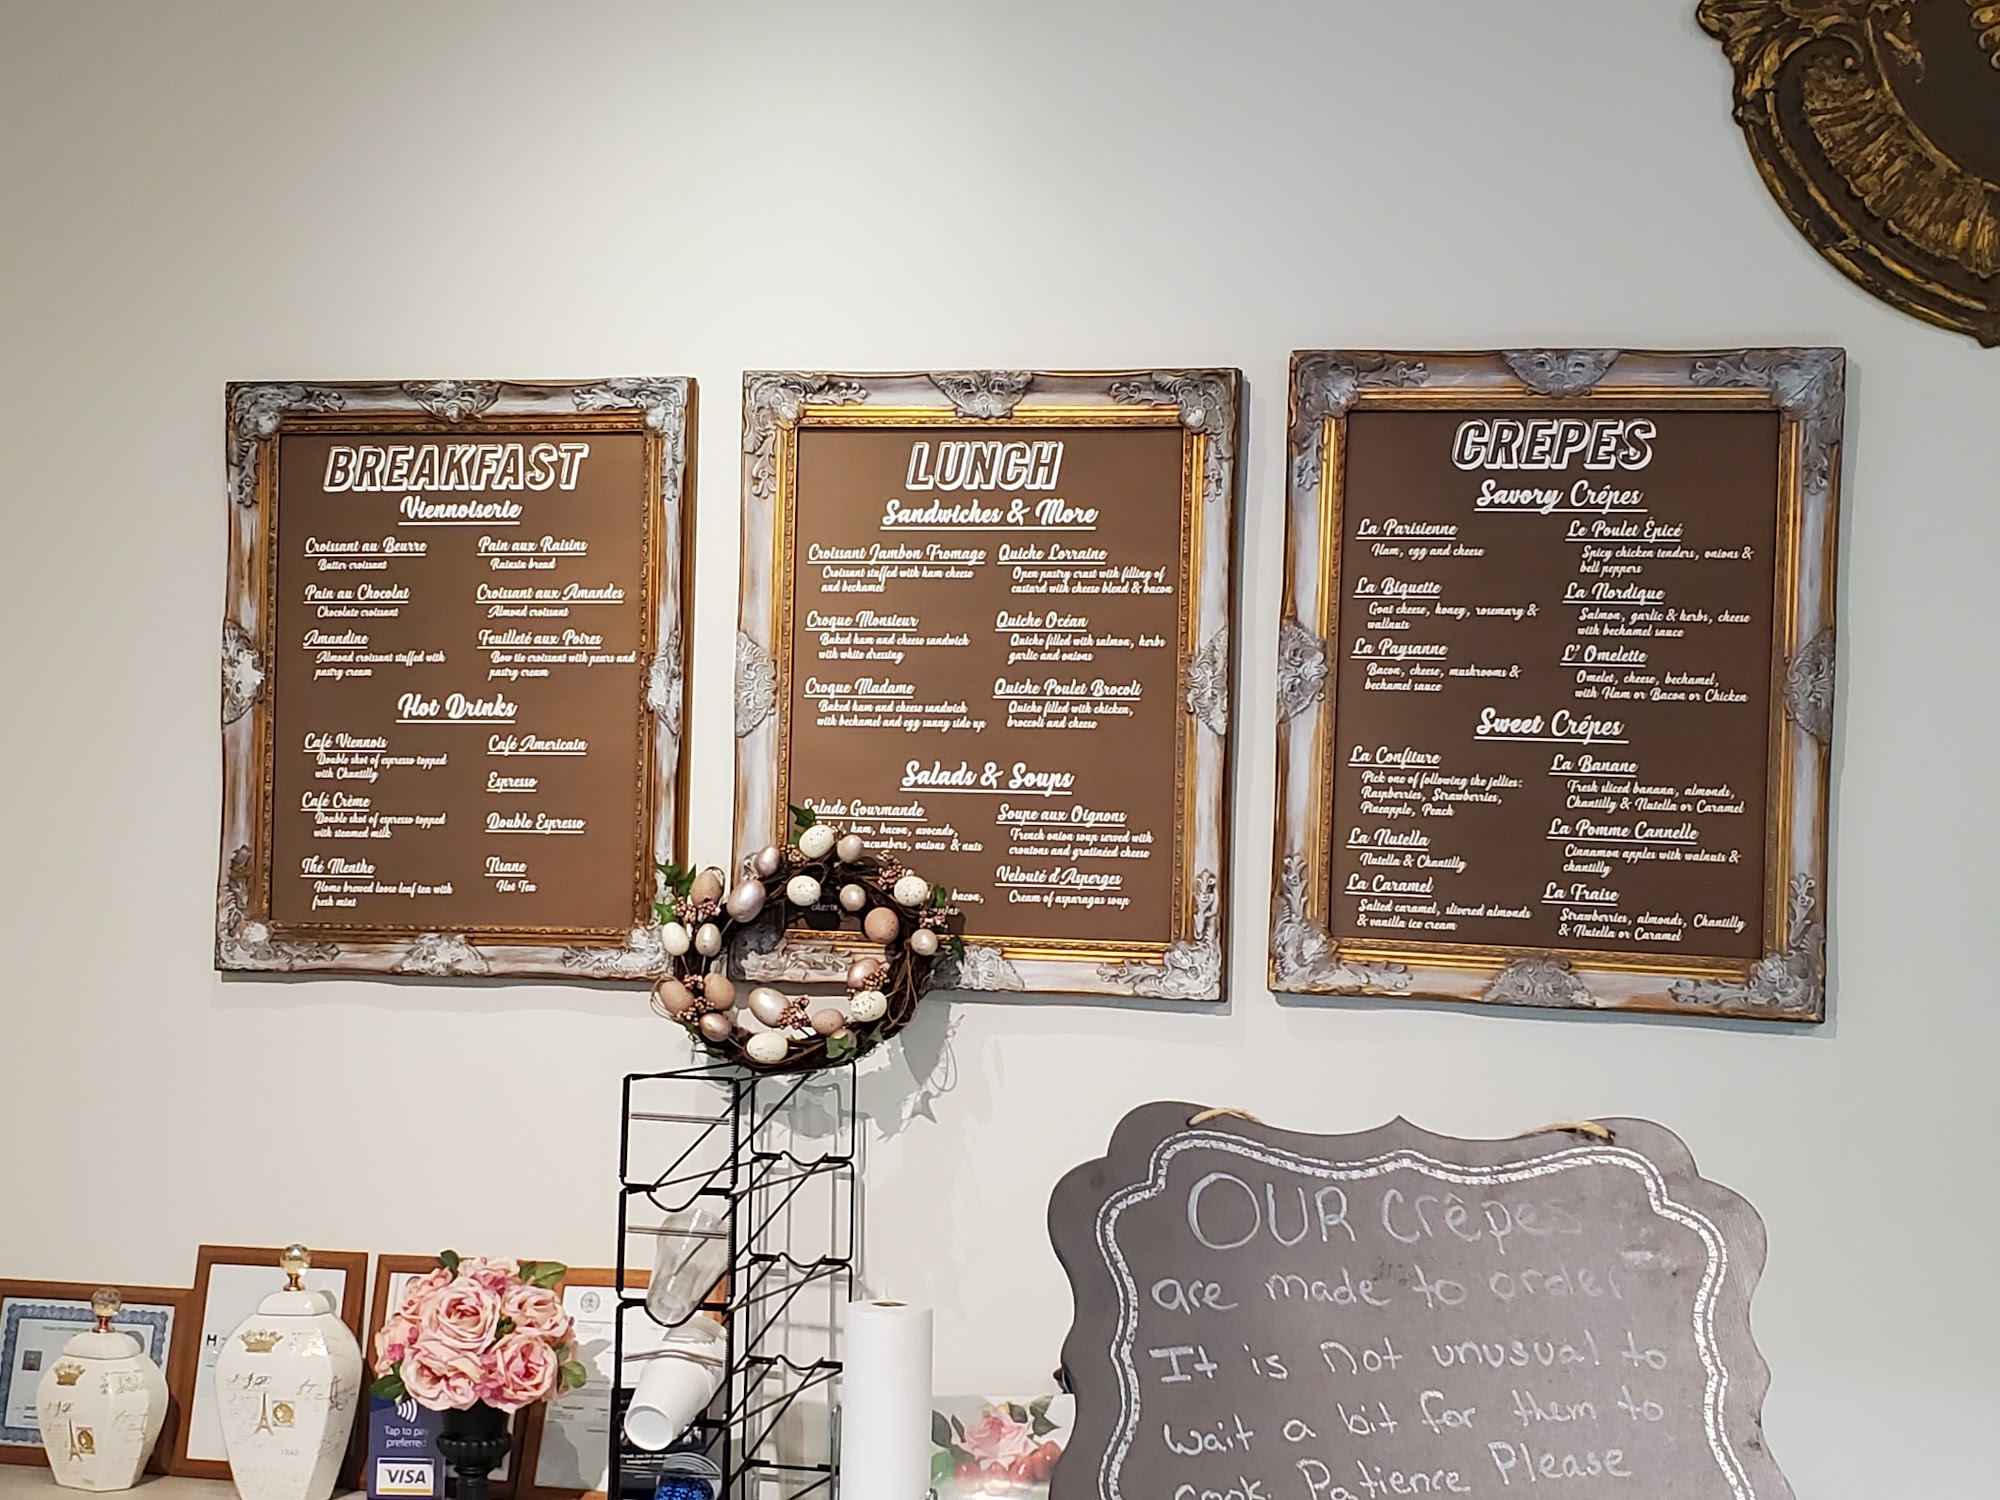 BREAKFAST
Viennoiserie
Croissant au Beurre
Butter croissant
Pain au Chocolat
Chocolate croissant
Amandine
Almond croissant stuffed with
pastry cream
Pain aux Raisins
Rainsin bread
Croissant aux Amandes
Almond croissant
Feuilleté aux Poires
Bow tie croissant with pears and
pastry cream
Hot Drinks
Café Viennois
Double shot of espresso topped
with Chantilly
Café Crème
Double shot of espresso topped
with steamed milk
Thé Menthe
Home brewed loose leaf tea with
fresh mint
Café Americain
Espresso
Double Espresso
Tisane
Hot Tea
LUNCH
Sandwiches & More
Croissant Jambon Fromage
Croissant stuffed with ham cheese
and bechamel
Croque Monsieur
Baked ham and cheese sandwich
with white dressing
Croque Madame
Baked ham and cheese sandwich
with bechamel and egg sunny side up
Quiche Lorraine
Open pastry crust with filling of
custard with cheese blend & bacon
Quiche Océan
Quiche filled with salmon, herbs
garlic and onions
Quiche Poulet Brocoli
Quiche filled with chicken,
broccoli and cheese
Salads & Soups
Salade Gourmande
ham, bacon, avocado,
cucumbers, onions & nuts
bacon,
Soupe aux Oignons
French onion soup served with
croutons and gratinéed cheese
Velouté d'Asperges
Cream of asparagus soup
CREPES
Savory Crêpes
La Parisienne
Ham, egg and cheese
La Biquette
Goat cheese, honey, rosemary &
wallnuts
La Paysanne
Bacon, cheese, mushrooms &
bechamel sauce
Le Poulet Épicé
Spicy chicken tenders, onions &
bell peppers
La Nordique
Salmon, garlic & herbs, cheese
with bechamel sauce
L' Omelette
Omelet, cheese, bechamel,
with Ham or Bacon or Chicken
Sweet Crêpes
La Confiture
Pick one of following the jellies:
Raspberries, Strawberries,
Pineapple, Peach
La Nutella
Nutella & Chantilly
La Caramel
Salted caramel, slivered almonds
& vanilla ice cream
La Banane
Fresh sliced banana, almonds,
Chantilly & Nutella or Caramel
La Pomme Cannelle
Cinnamon apples with walnuts &
chantilly
La Fraise
Strawberries, almonds, Chantilly
& Nutella or Caramel
OUR Crêpes
are made to order
It is not unusual to
wait a bit for them to
cook. Patience Please
Tap to pay
preferred
VISA
1865